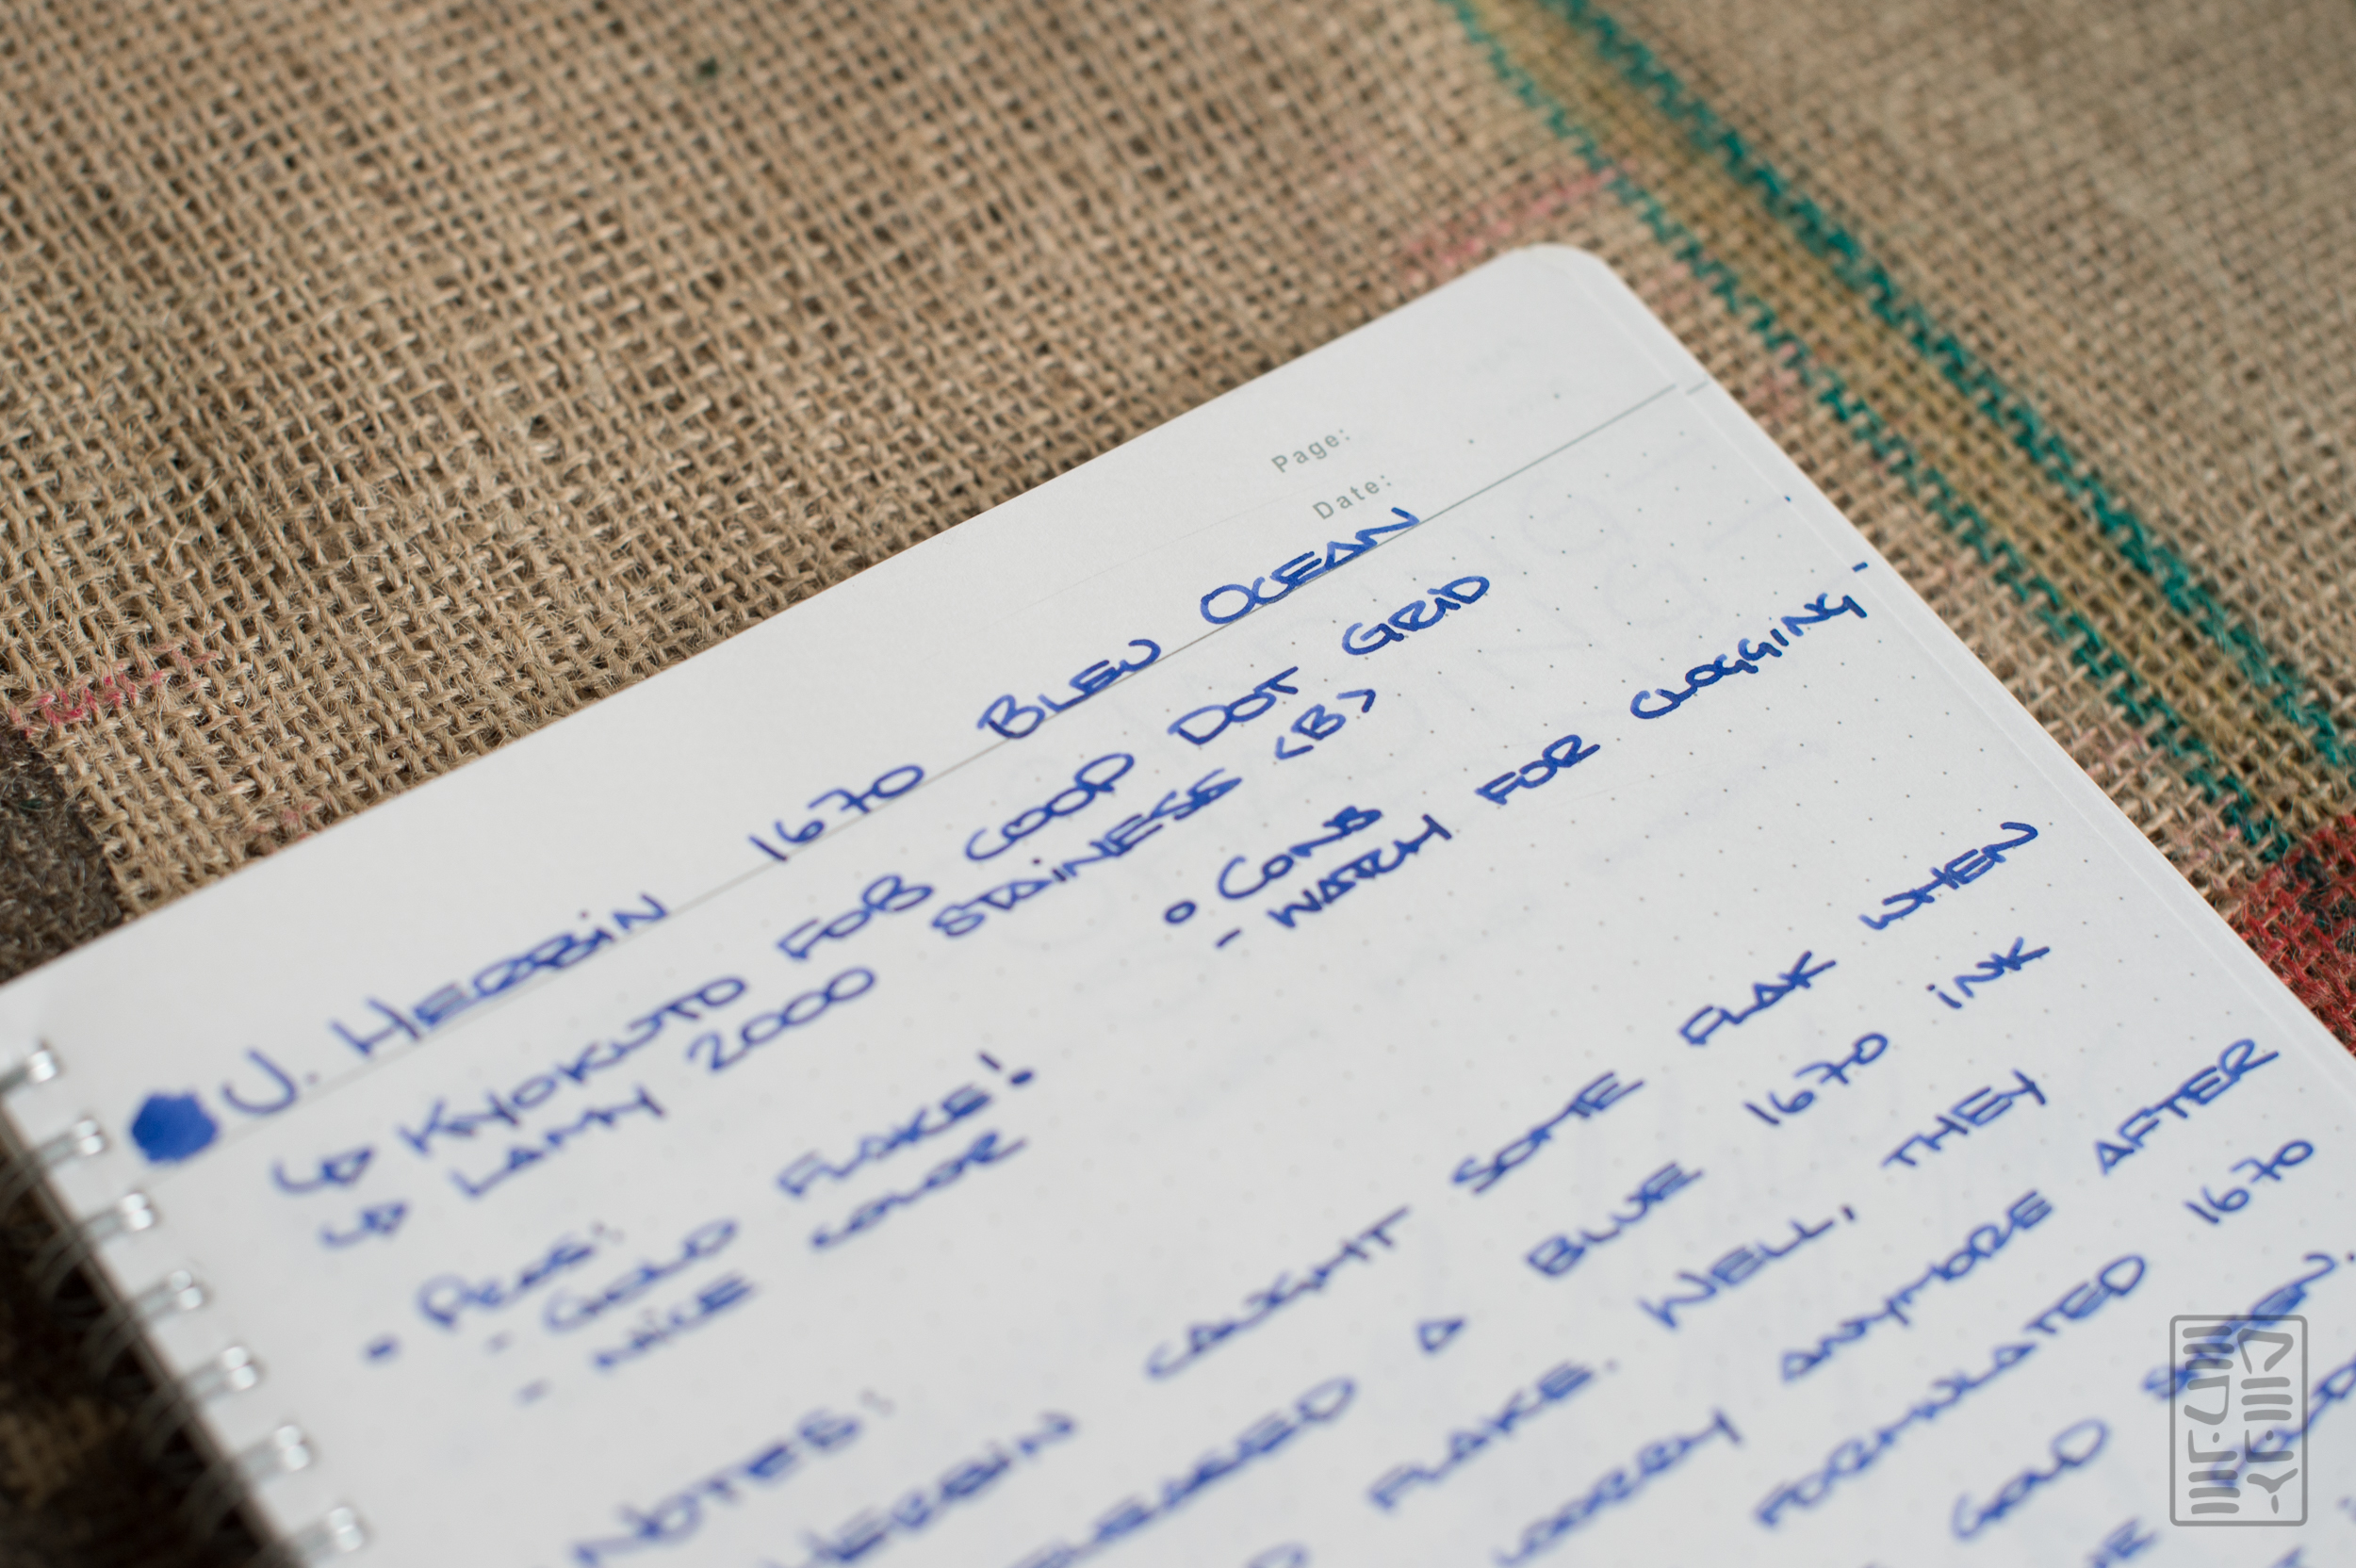 Page:
Date:
J. HERBIN 1670 BLEU OCEAN
↳ KYOKUTO FOB COOP DOT GRID
↳ LAMY 2000 STAINLESS <B>
• PROS:
- GOLD FLAKE!
- NICE COLOR
• CONS
- WATCH FOR CLOGGING
NOTES:
HERBIN CAUGHT SOME FLAK WHEN
RELEASED A BLUE 1670 INK
FLAKE. WELL, THEY
WORRY ANYMORE AFTER
FORMULATED 1670
GOLD